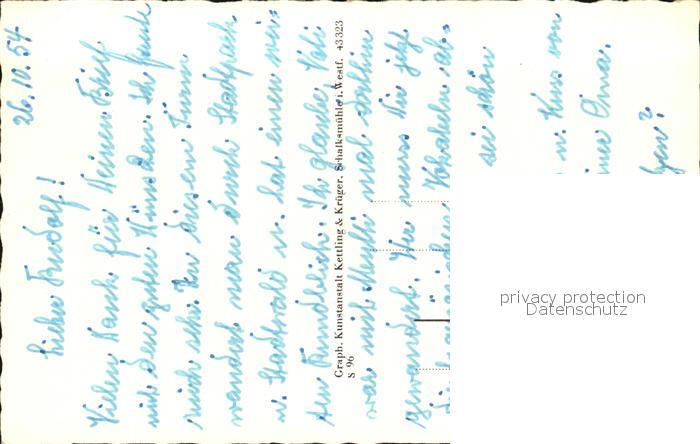 26.10.54
Lieber Rudolf!
Vielen Dank für Deinen Brief
mit den guten Wünschen. Ich freute
mich sehr. Zu diesem Turm
wandert man durch Stadtpark
u. Stadtwald u. hat einen
den Rundblick. Ich glaube Vati
war mit Mutti mal dorthin
gewandert. Du musst Dir jetzt
Vokabeln ab
sei schön
u. Kuss von
Oma.
Graph. Kunstanstalt Kettling & Krüger, Schalksmühle i. Westf. 43323
S 96
privacy protection
Datenschutz